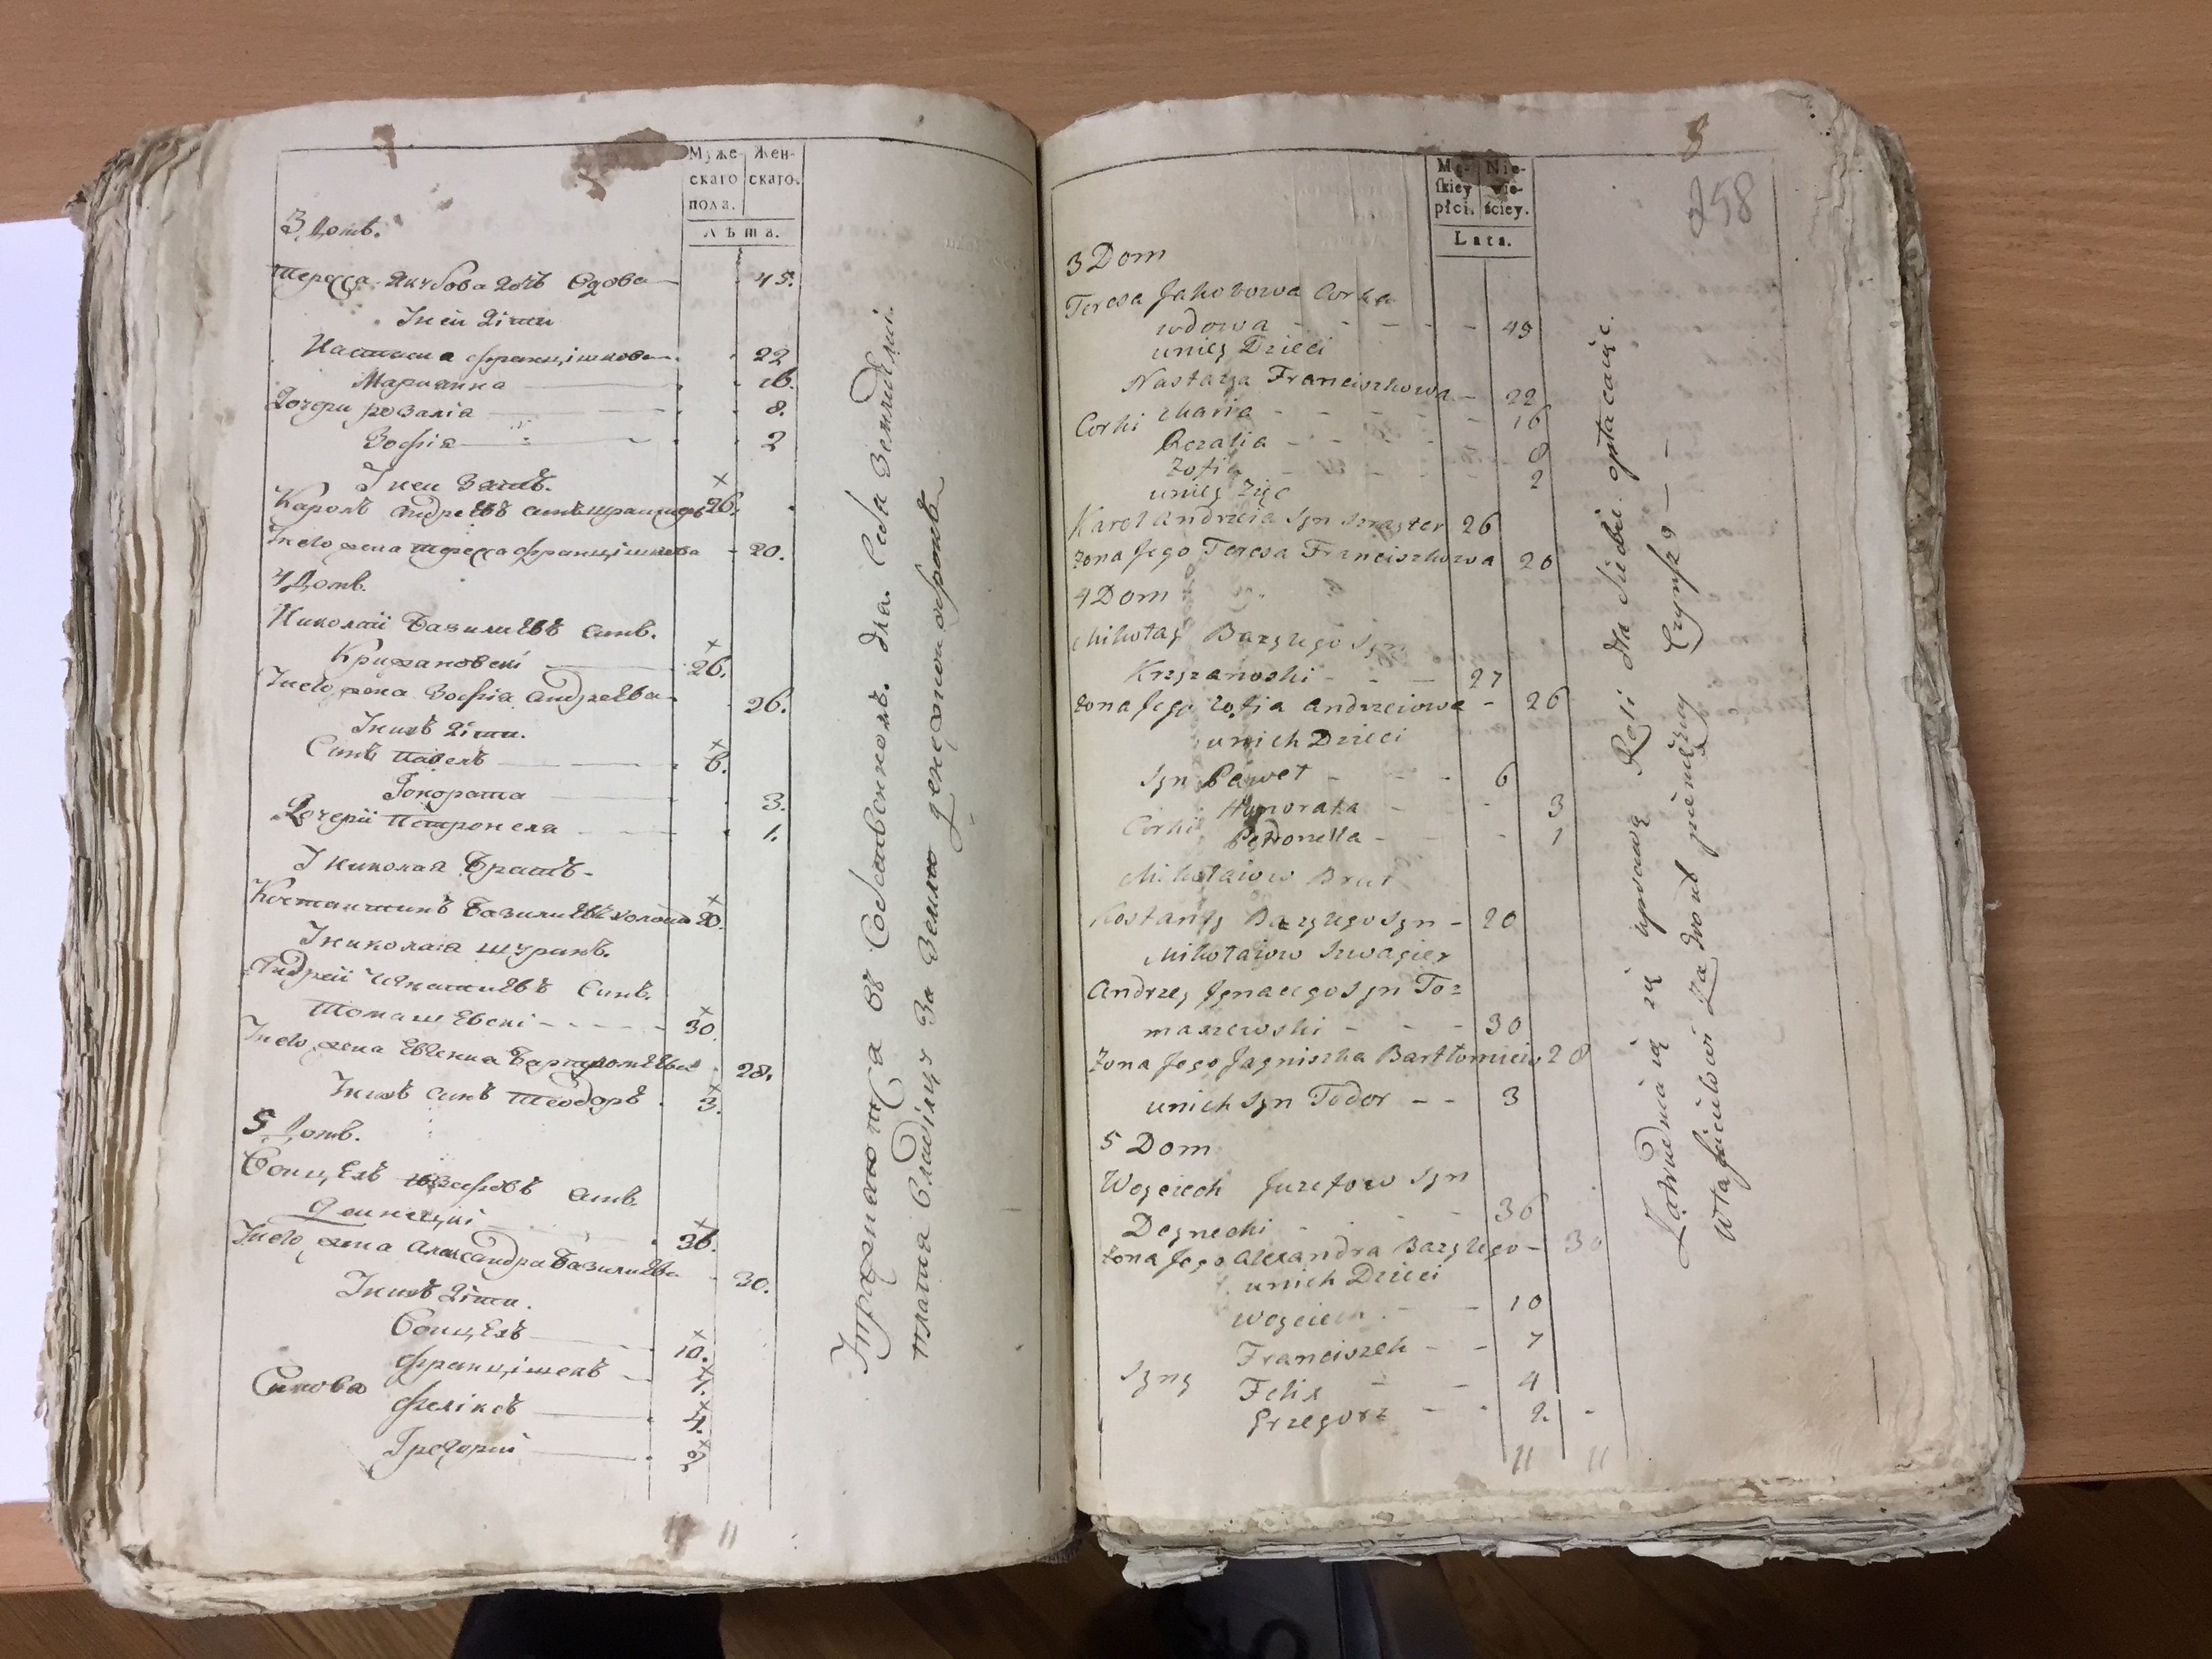 Муже- Жен-
скаго скаго.
пола.
Лѣта.
3 Домъ.
Тересса Якубова дочъ Вдова 45.
У неи діти
Настазиа францішкова 22
Марианна 16.
Дочери розаліа 8.
Зофіа 2
У неи Зать.
Кароль андреевъ синъ 26.
Иего жена тересса францішкова 20.
4 Домъ.
Николай Базилиевъ синъ.
Крижановскі 26.
Иего жена Зофіа андреева 26.
У нихъ діти.
Синъ Павелъ 6.
Гонората 3.
Дочери Петронела 1.
У николая братъ
Костантинъ Базилиевъ 20.
У николая шуринъ.
Андрей Игнатиевъ синъ.
Томашевскі 30.
Иего жена Евгениа Бартломеева 28.
У нихъ синъ Теодоръ 3.
5 Домъ.
Воицехъ иозефовъ синъ
36.
Иего жена Александра Базилиева 30.
У нихъ діти.
Воицехъ 10.
францішекъ 7.
Синова феліксъ 4.
Грегорий 2
11 11
за Землю
8
258
Mę- Nie-
skiey wie-
płci. ściey.
Lata.
3 Dom
Teresa Jakobowa Corka
wdowa 45
uniey Dzieci
Nastazya Franciszkowa 22
Corki Maria 16
Rozalia 8
Zofia 2
uniey Zięc
Karol Andrzeia Syn 26
Zona Jego Teresa Franciszkowa 20
4 Dom
Mikołay Bazylego Syn
Krzyzanoski 27
Zona Jego Zofia Andrzeiowa 26
unich Dzieci
Syn Paweł 6
Honorata 3
Corki Petronella 1
Mikołaiow Brat
Kostanty Bazylego Syn 20
Mikołaiow Szwagier
Andrzey Ignacego Syn To=
maszewski 30
Zona Jego Jagniszka Bartłomieiow 28
unich Syn Todor 3
5 Dom
Woyciech Juzefow Syn
Degnecki 36
Zona Jego Alexandra Bazylego 30
unich Dzieci
Woyciech 10
Franciszek 7
Syny Felix 4
Grzegorz 2.
11 11
Zatrudniaią się uprawą Roli dla siebie opłacaiąc
Właścicielowi Za Grunt pieniężny Czynsz